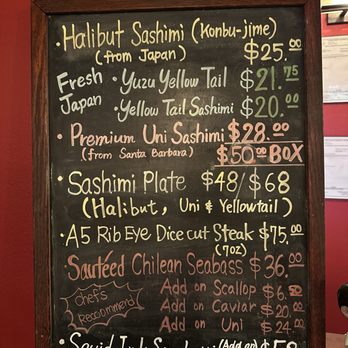 • Halibut Sashimi (Konbu-jime)
(from Japan) $25.00
Fresh Japan
• Yuzu Yellow Tail $21.75
• Yellow Tail Sashimi $20.00
• Premium Uni Sashimi $28.00
(from Santa Barbara) $50.00 BOX
• Sashimi Plate $48/$68
(Halibut, Uni & Yellowtail)
• A5 Rib Eye Dice cut Steak $75.00
(7oz)
Sautéed Chilean Seabass $36.00
Chef's Recommend
Add on Scallop $6.50
Add on Caviar $20.00
Add on Uni $24.00
Squid Ink (Add on